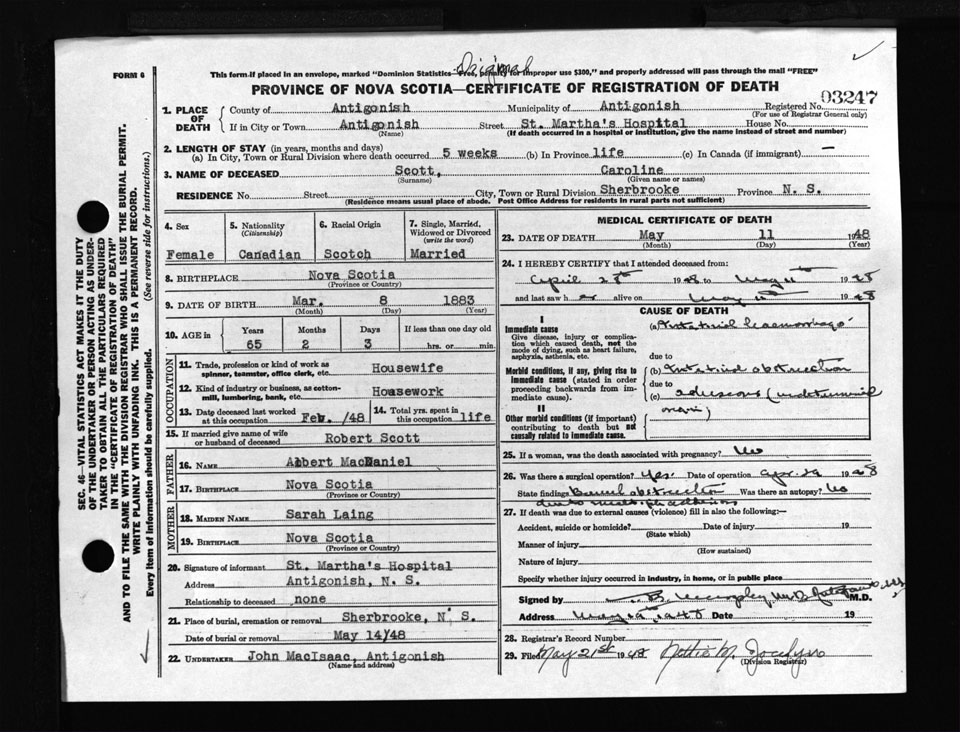 Original
FORM 6
This form if placed in an envelope, marked "Dominion Statistics—Free, penalty for improper use $300," and properly addressed will pass through the mail "FREE"
PROVINCE OF NOVA SCOTIA—CERTIFICATE OF REGISTRATION OF DEATH
03247
1. PLACE OF DEATH County of Antigonish Municipality of Antigonish Registered No.
(For use of Registrar General only)
If in City or Town Antigonish Street St. Martha's Hospital House No.
(Name) (If death occurred in a hospital or institution, give the name instead of street and number)
2. LENGTH OF STAY (in years, months and days)
(a) In City, Town or Rural Division where death occurred 5 weeks (b) In Province life (c) In Canada (if immigrant) —
3. NAME OF DECEASED Scott, Caroline
(Surname) (Given name or names)
RESIDENCE No. Street City, Town or Rural Division Sherbrooke Province N. S.
(Residence means usual place of abode. Post Office Address for residents in rural parts not sufficient)
4. Sex 5. Nationality (Citizenship) 6. Racial Origin 7. Single, Married, Widowed or Divorced (write the word)
Female Canadian Scotch Married
8. BIRTHPLACE Nova Scotia
(Province or Country)
9. DATE OF BIRTH Mar. 8 1883
(Month) (Day) (Year)
10. AGE in Years Months Days If less than one day old
65 2 3 hrs. or min.
OCCUPATION
11. Trade, profession or kind of work as spinner, teamster, office clerk, etc. Housewife
12. Kind of industry or business, as cotton-mill, lumbering, bank, etc. Housework
13. Date deceased last worked at this occupation Feb. /48 14. Total yrs. spent in this occupation life
15. If married give name of wife or husband of deceased Robert Scott
FATHER
16. NAME Albert MacDaniel
17. BIRTHPLACE Nova Scotia
(Province or Country)
MOTHER
18. MAIDEN NAME Sarah Laing
19. BIRTHPLACE Nova Scotia
(Province or Country)
20. Signature of informant St. Martha's Hospital
Address Antigonish, N. S.
Relationship to deceased none
21. Place of burial, cremation or removal Sherbrooke, N. S.
Date of burial or removal May 14/48
22. UNDERTAKER John MacIsaac, Antigonish
(Name and address)
MEDICAL CERTIFICATE OF DEATH
23. DATE OF DEATH May 11 1948
(Month) (Day) (Year)
24. I HEREBY CERTIFY that I attended deceased from:
April 1948 to May 11th 1948
and last saw her alive on May 11th 1948
CAUSE OF DEATH
I
Immediate cause
Give disease, injury or complication which caused death, not the mode of dying, such as heart failure, asphyxia, asthenia, etc.
(a) Intestinal haemorrhage
due to
Morbid conditions, if any, giving rise to immediate cause (stated in order proceeding backwards from immediate cause).
(b) Intestinal obstruction
due to
(c) adhesions (undetermined origin)
II
Other morbid conditions (if important) contributing to death but not causally related to immediate cause.
25. If a woman, was the death associated with pregnancy? No
26. Was there a surgical operation? Yes. Date of operation Apr. 29 1948
State findings Bowel obstruction Was there an autopsy? No
due to adhesions
27. If death was due to external causes (violence) fill in also the following:—
Accident, suicide or homicide? Date of injury 19
(State which)
Manner of injury
(How sustained)
Nature of injury
Specify whether injury occurred in industry, in home, or in public place
Signed by M.D.
Address Date 19
28. Registrar's Record Number
29. Filed May 21st 1948 Nettie M. Jocelyn
(Division Registrar)
SEC. 46—VITAL STATISTICS ACT MAKES IT THE DUTY
OF THE UNDERTAKER OR PERSON ACTING AS UNDER-
TAKER TO OBTAIN ALL THE PARTICULARS REQUIRED
IN THE "CERTIFICATE OF REGISTRATION OF DEATH"
AND TO FILE THE SAME WITH THE DIVISION REGISTRAR WHO SHALL ISSUE THE BURIAL PERMIT.
WRITE PLAINLY WITH UNFADING INK. THIS IS A PERMANENT RECORD.
Every item of information should be carefully supplied. (See reverse side for instructions.)